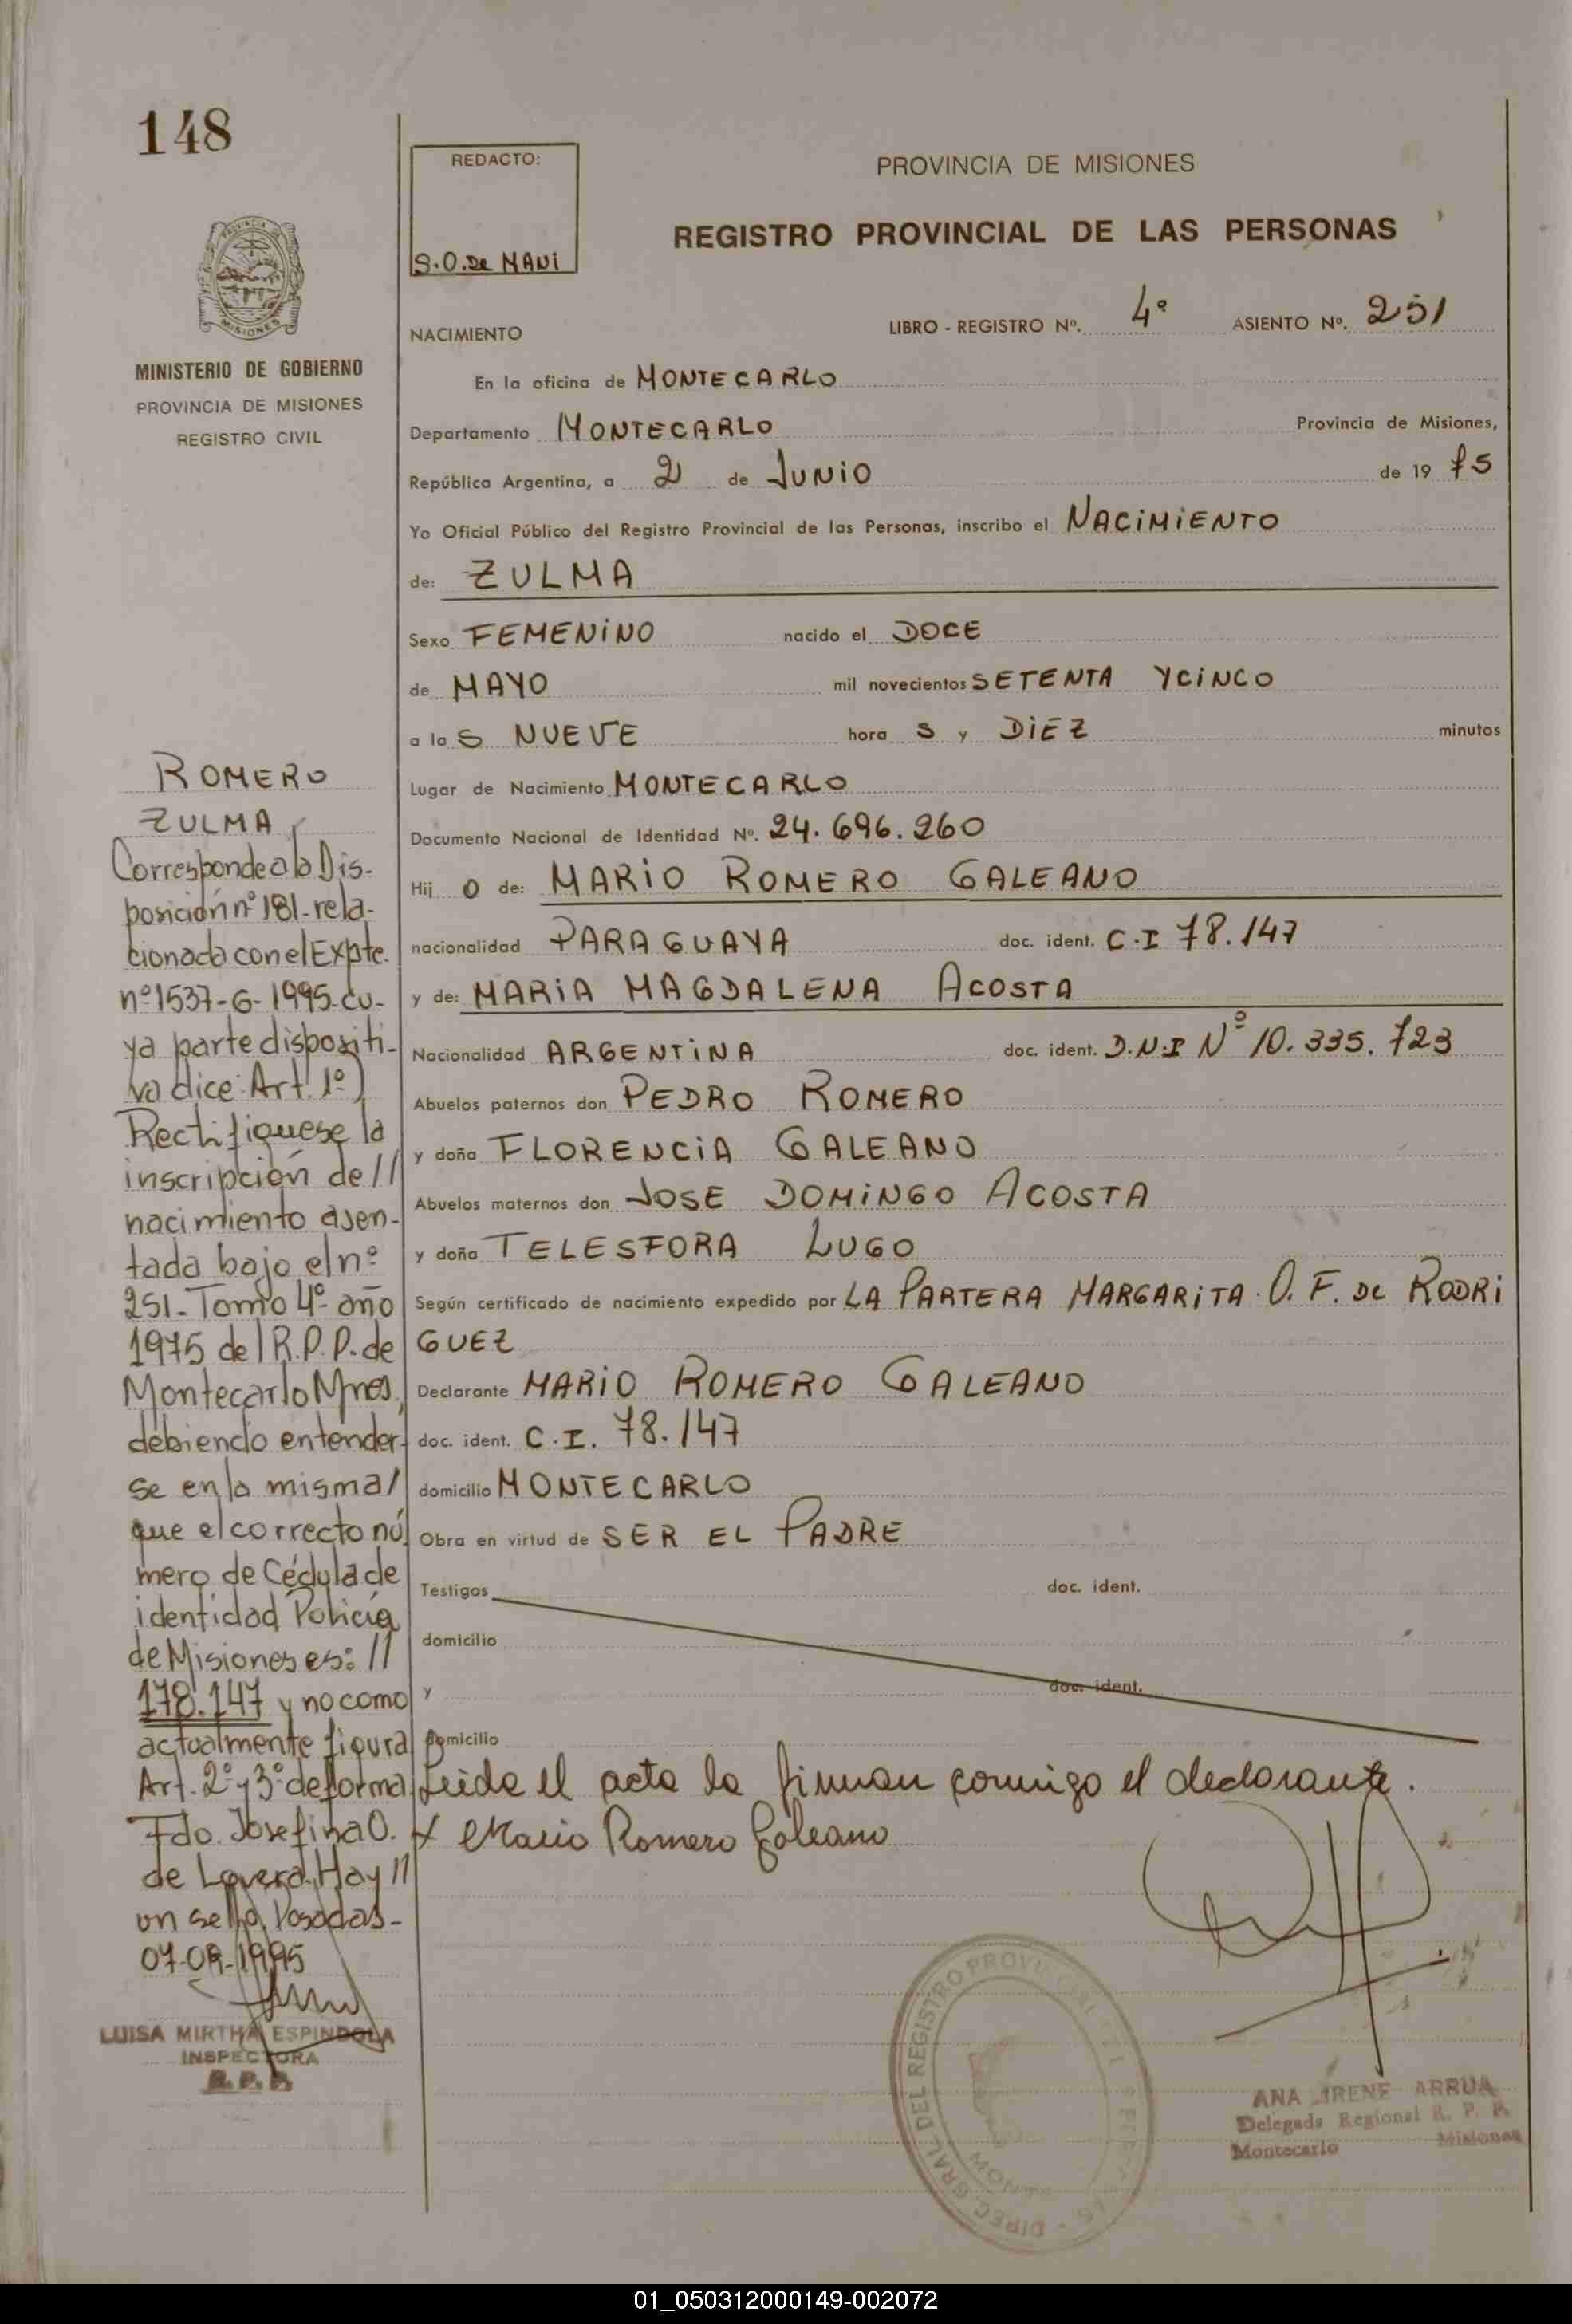 148
REDACTO:
S.O. De MANi
PROVINCIA DE MISIONES
REGISTRO PROVINCIAL DE LAS PERSONAS
MINISTERIO DE GOBIERNO
PROVINCIA DE MISIONES
REGISTRO CIVIL
NACIMIENTO
LIBRO - REGISTRO Nº. 4º ASIENTO Nº. 251
En la oficina de MONTECARLO
Departamento MONTECARLO Provincia de Misiones,
República Argentina, a 2 de JUNiO de 19 75
Yo Oficial Público del Registro Provincial de las Personas, inscribo el NACiMiENTO
de: ZULMA
Sexo FEMENiNO nacido el DOCE
de MAYO mil novecientos SETENTA YCiNCO
a la S NUEVE hora S y DiEZ minutos
Lugar de Nacimiento MONTECARLO
Documento Nacional de Identidad Nº. 24.696.260
Hij O de: MARiO ROMERO GALEANO
nacionalidad PARAGUAYA doc. ident. C.I 78.147
y de: MARiA MAGDALENA ACOSTA
Nacionalidad ARGENTiNA doc. ident. D.N.I Nº 10.335.723
Abuelos paternos don PEDRO ROMERO
y doña FLORENCiA GALEANO
Abuelos maternos don JOSE DOMiNGO ACOSTA
y doña TELESFORA LUGO
Según certificado de nacimiento expedido por LA PARTERA MARGARiTA O. F. De RODRi
GUEZ
Declarante MARiO ROMERO GALEANO
doc. ident. C.I. 78.147
domicilio MONTECARLO
Obra en virtud de SER EL PADRE
Testigos doc. ident.
domicilio
y doc. ident.
domicilio
Leida el acta la firman conmigo el declarante.
x Mario Romero Galeano
ROMERO
ZULMA
Corresponde a la Dis-
posición nº 181-rela-
cionada con el Expte.
nº 1537-G-1995-cu-
ya parte dispositi-
va dice: Art. 1º)
Rectifiquese la
inscripción de //
nacimiento asen-
tada bajo el nº
251-Tomo 4º-año
1975 del R.P.P. de
Montecarlo Mnes,
debiendo entender-
se en la misma/
que el correcto nú
mero de Cédula de
identidad Policia
de Misiones es: //
178.147 y no como
actualmente figura
Art. 2º y 3º de forma
Fdo. Josefina O.
de Lovera. Hay //
un sello, Posadas-
LUISA MIRTHA ESPINDOLA
INSPECTORA
R. P. P.
DIREC. GRAL. DEL REGISTRO PROVINCIAL DE
MONT
ANA IRENE ARRUA
Delegada Regional R. P. P.
Montecarlo Misiones
01_050312000149-002072